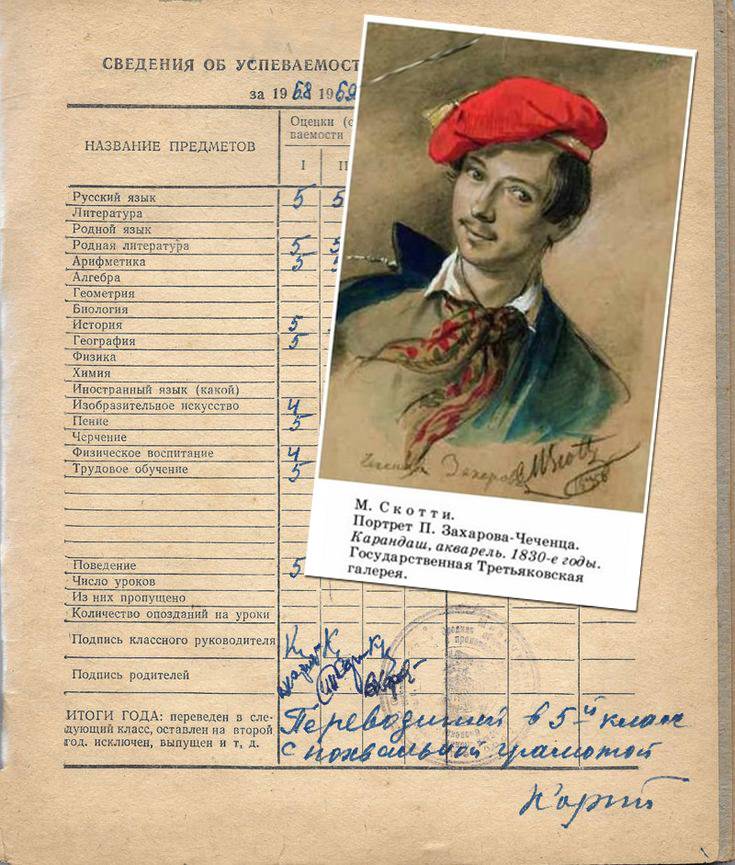 СВЕДЕНИЯ ОБ УСПЕВАЕМОСТ
за 1968 1969
НАЗВАНИЕ ПРЕДМЕТОВ
Оценки (с
ваемости
I II
Русский язык 5 5
Литература
Родной язык
Родная литература 5 5
Арифметика 5 5
Алгебра
Геометрия
Биология
История 5
География 5
Физика
Химия
Иностранный язык (какой)
Изобразительное искусство 4
Пение 5
Черчение
Физическое воспитание 4
Трудовое обучение 5
Поведение 5
Число уроков
Из них пропущено
Количество опозданий на уроки
Подпись классного руководителя
Подпись родителей
ИТОГИ ГОДА: переведен в сле-
дующий класс, оставлен на второй
год. исключен, выпущен и т, д.
Переводится в 5-й класс
с похвальной грамотой
Захаров MScotti
М. Скотти.
Портрет П. Захарова-Чеченца.
Карандаш, акварель. 1830-е годы.
Государственная Третьяковская
галерея.